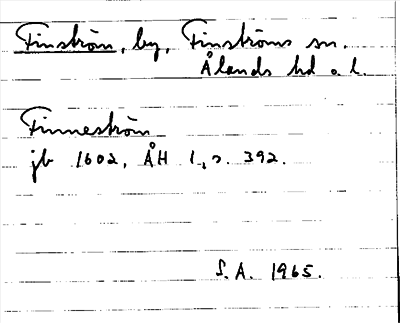 Finström, by, Finströms sn.
Ålands hd o. l.
Finneström
jb 1602, ÅH 1, s. 392.
S.A. 1965.